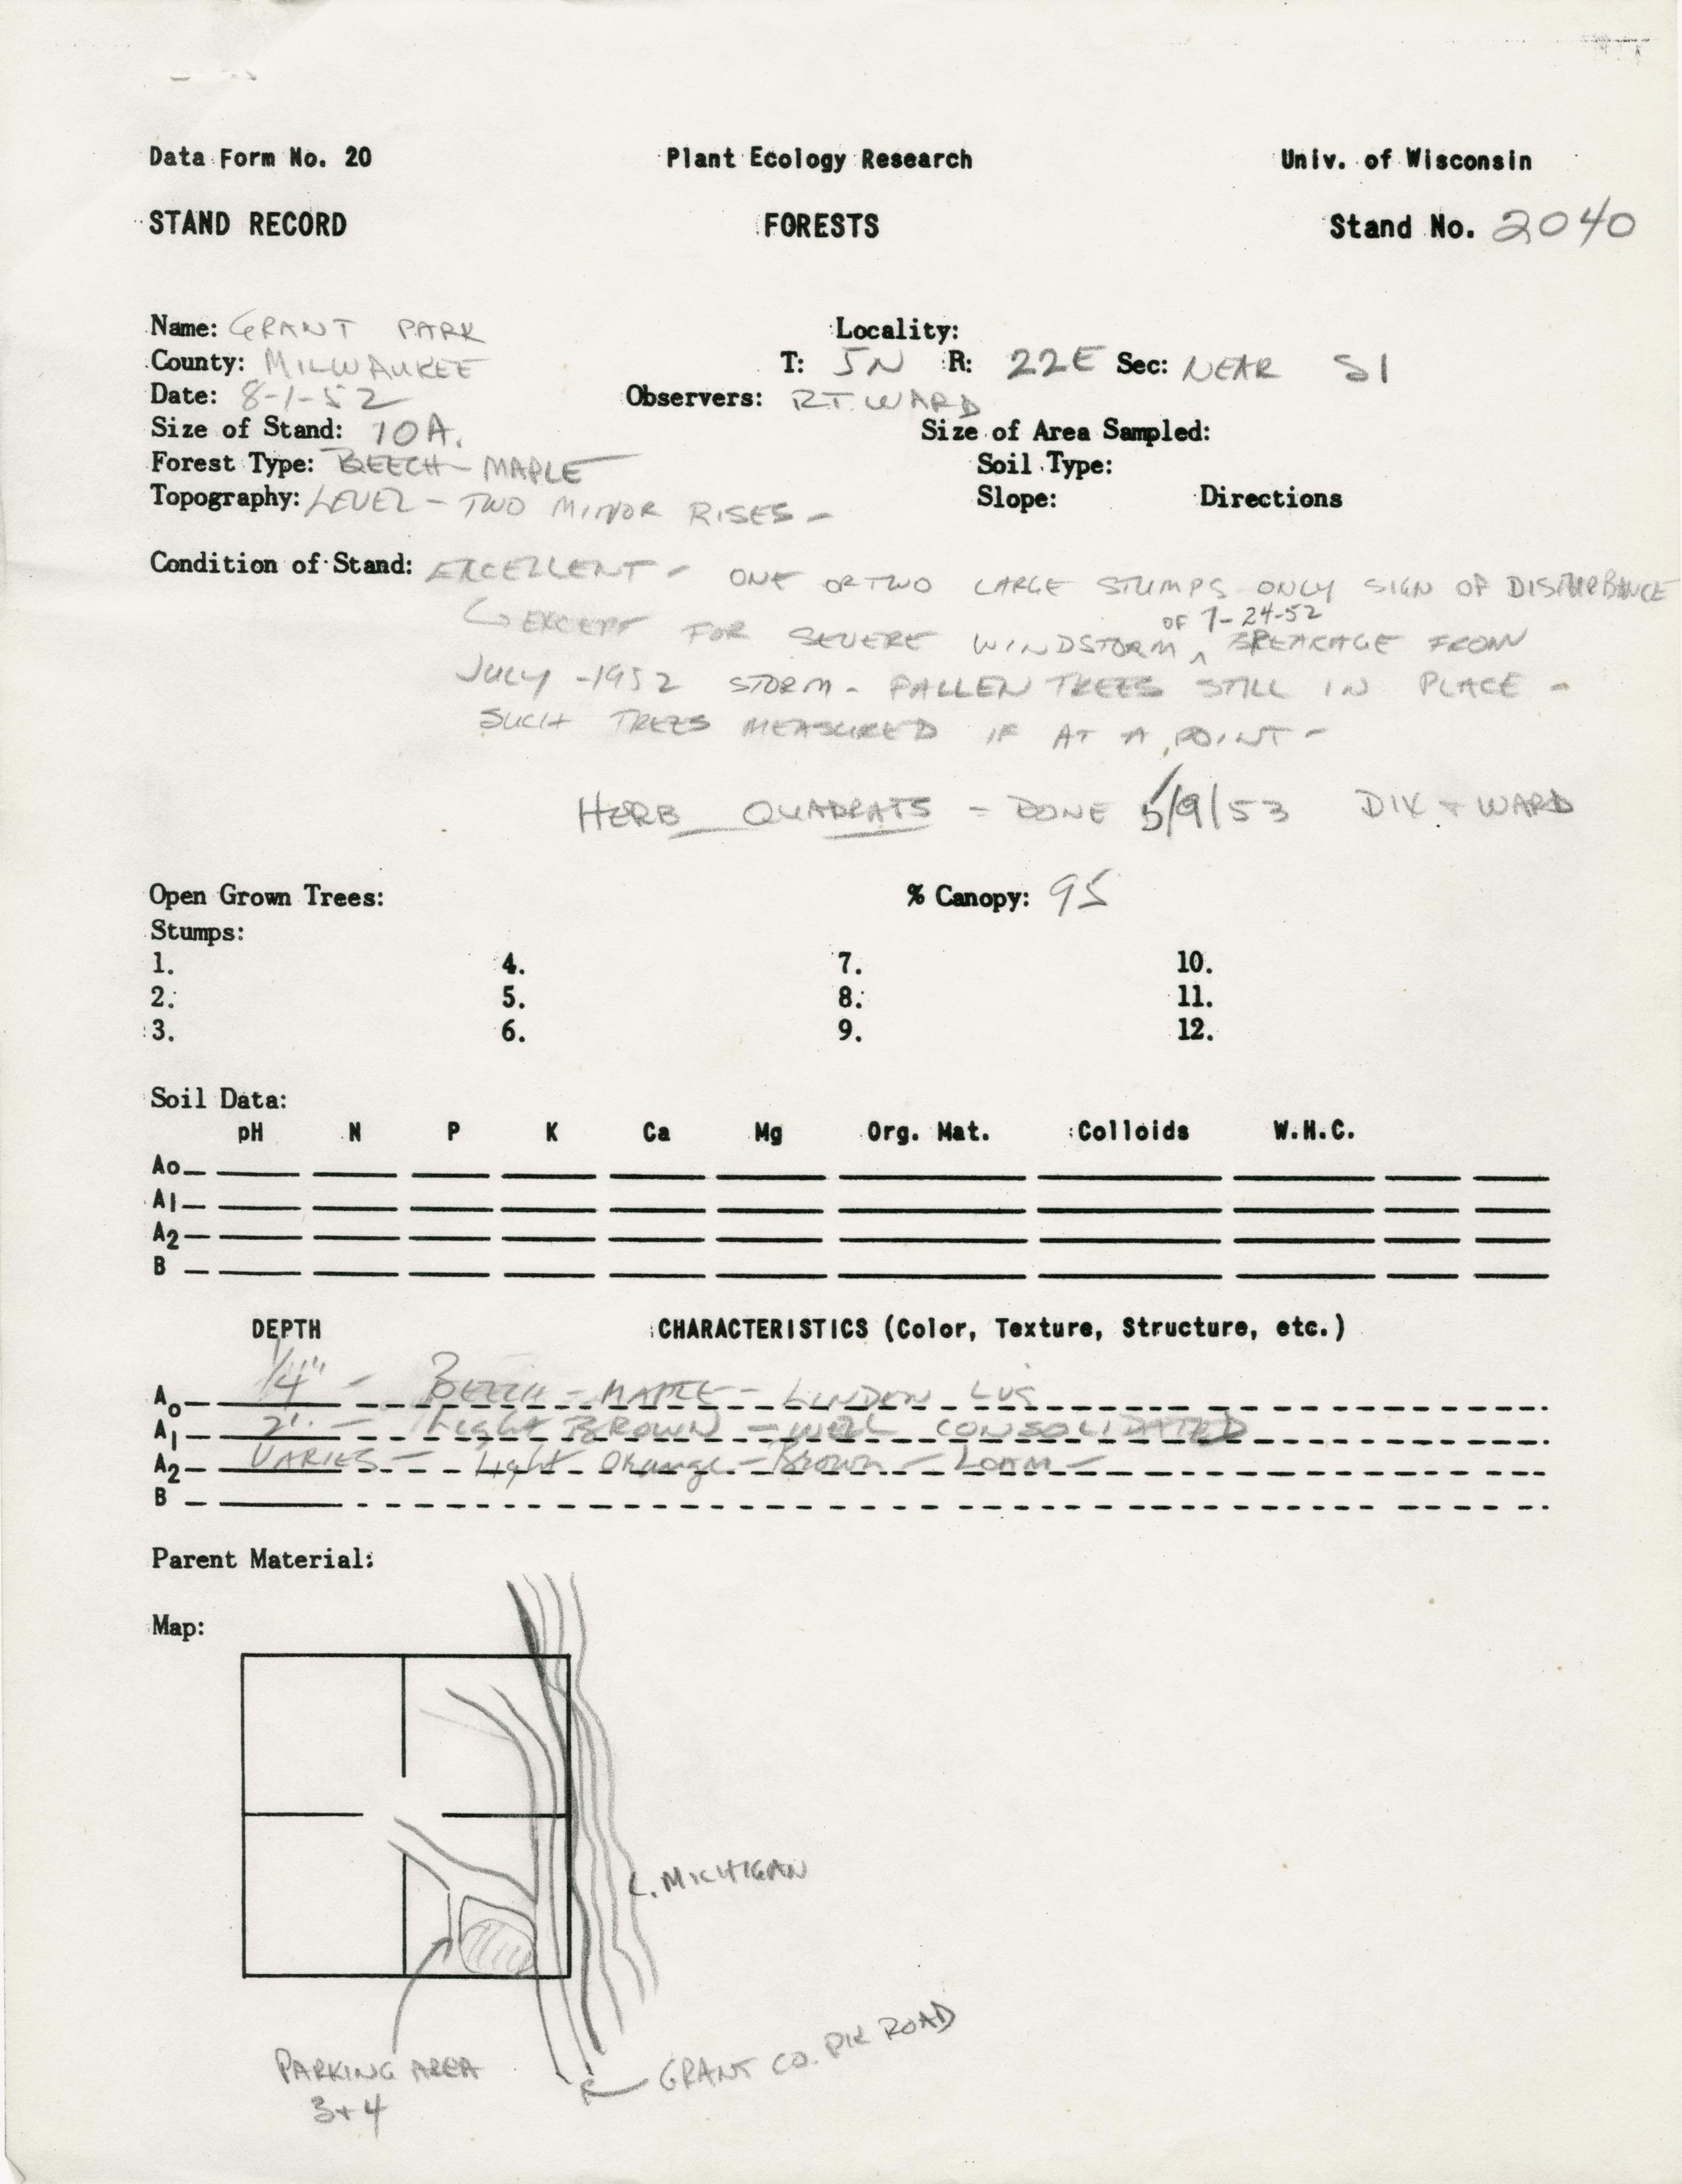 Data Form No. 20 Plant Ecology Research Univ. of Wisconsin
STAND RECORD FORESTS Stand No. 2040
Name: GRANT PARK Locality:
County: MILWAUKEE T: 5N R: 22E Sec: NEAR S1
Date: 8-1-52 Observers: R.T. WARD
Size of Stand: 10A. Size of Area Sampled:
Forest Type: BEECH-MAPLE Soil Type:
Topography: LEVEL - TWO MINOR RISES - Slope: Directions
Condition of Stand: EXCELLENT - ONE OR TWO LARGE STUMPS ONLY SIGN OF DISTURBANCE
EXCEPT FOR SEVERE WINDSTORM OF 7-24-52 BREAKAGE FROM
JULY -1952 STORM - FALLEN TREES STILL IN PLACE -
SUCH TREES MEASURED IF AT A POINT -
HERB QUADRATS = DONE 5/9/53 DIX + WARD
Open Grown Trees: % Canopy: 95
Stumps:
1. 4. 7. 10.
2. 5. 8. 11.
3. 6. 9. 12.
Soil Data:
pH N P K Ca Mg Org. Mat. Colloids W.H.C.
Ao
A1
A2
B
DEPTH CHARACTERISTICS (Color, Texture, Structure, etc.)
Ao 1/4" - BEECH - MAPLE - LINDEN LVS
A1 2". - Light BROWN - WELL CONSOLIDATED
A2 VARIES - Light Orange - Brown - LOAM -
B
Parent Material:
Map:
L. MICHIGAN
GRANT CO. PK ROAD
PARKING AREA
3+4